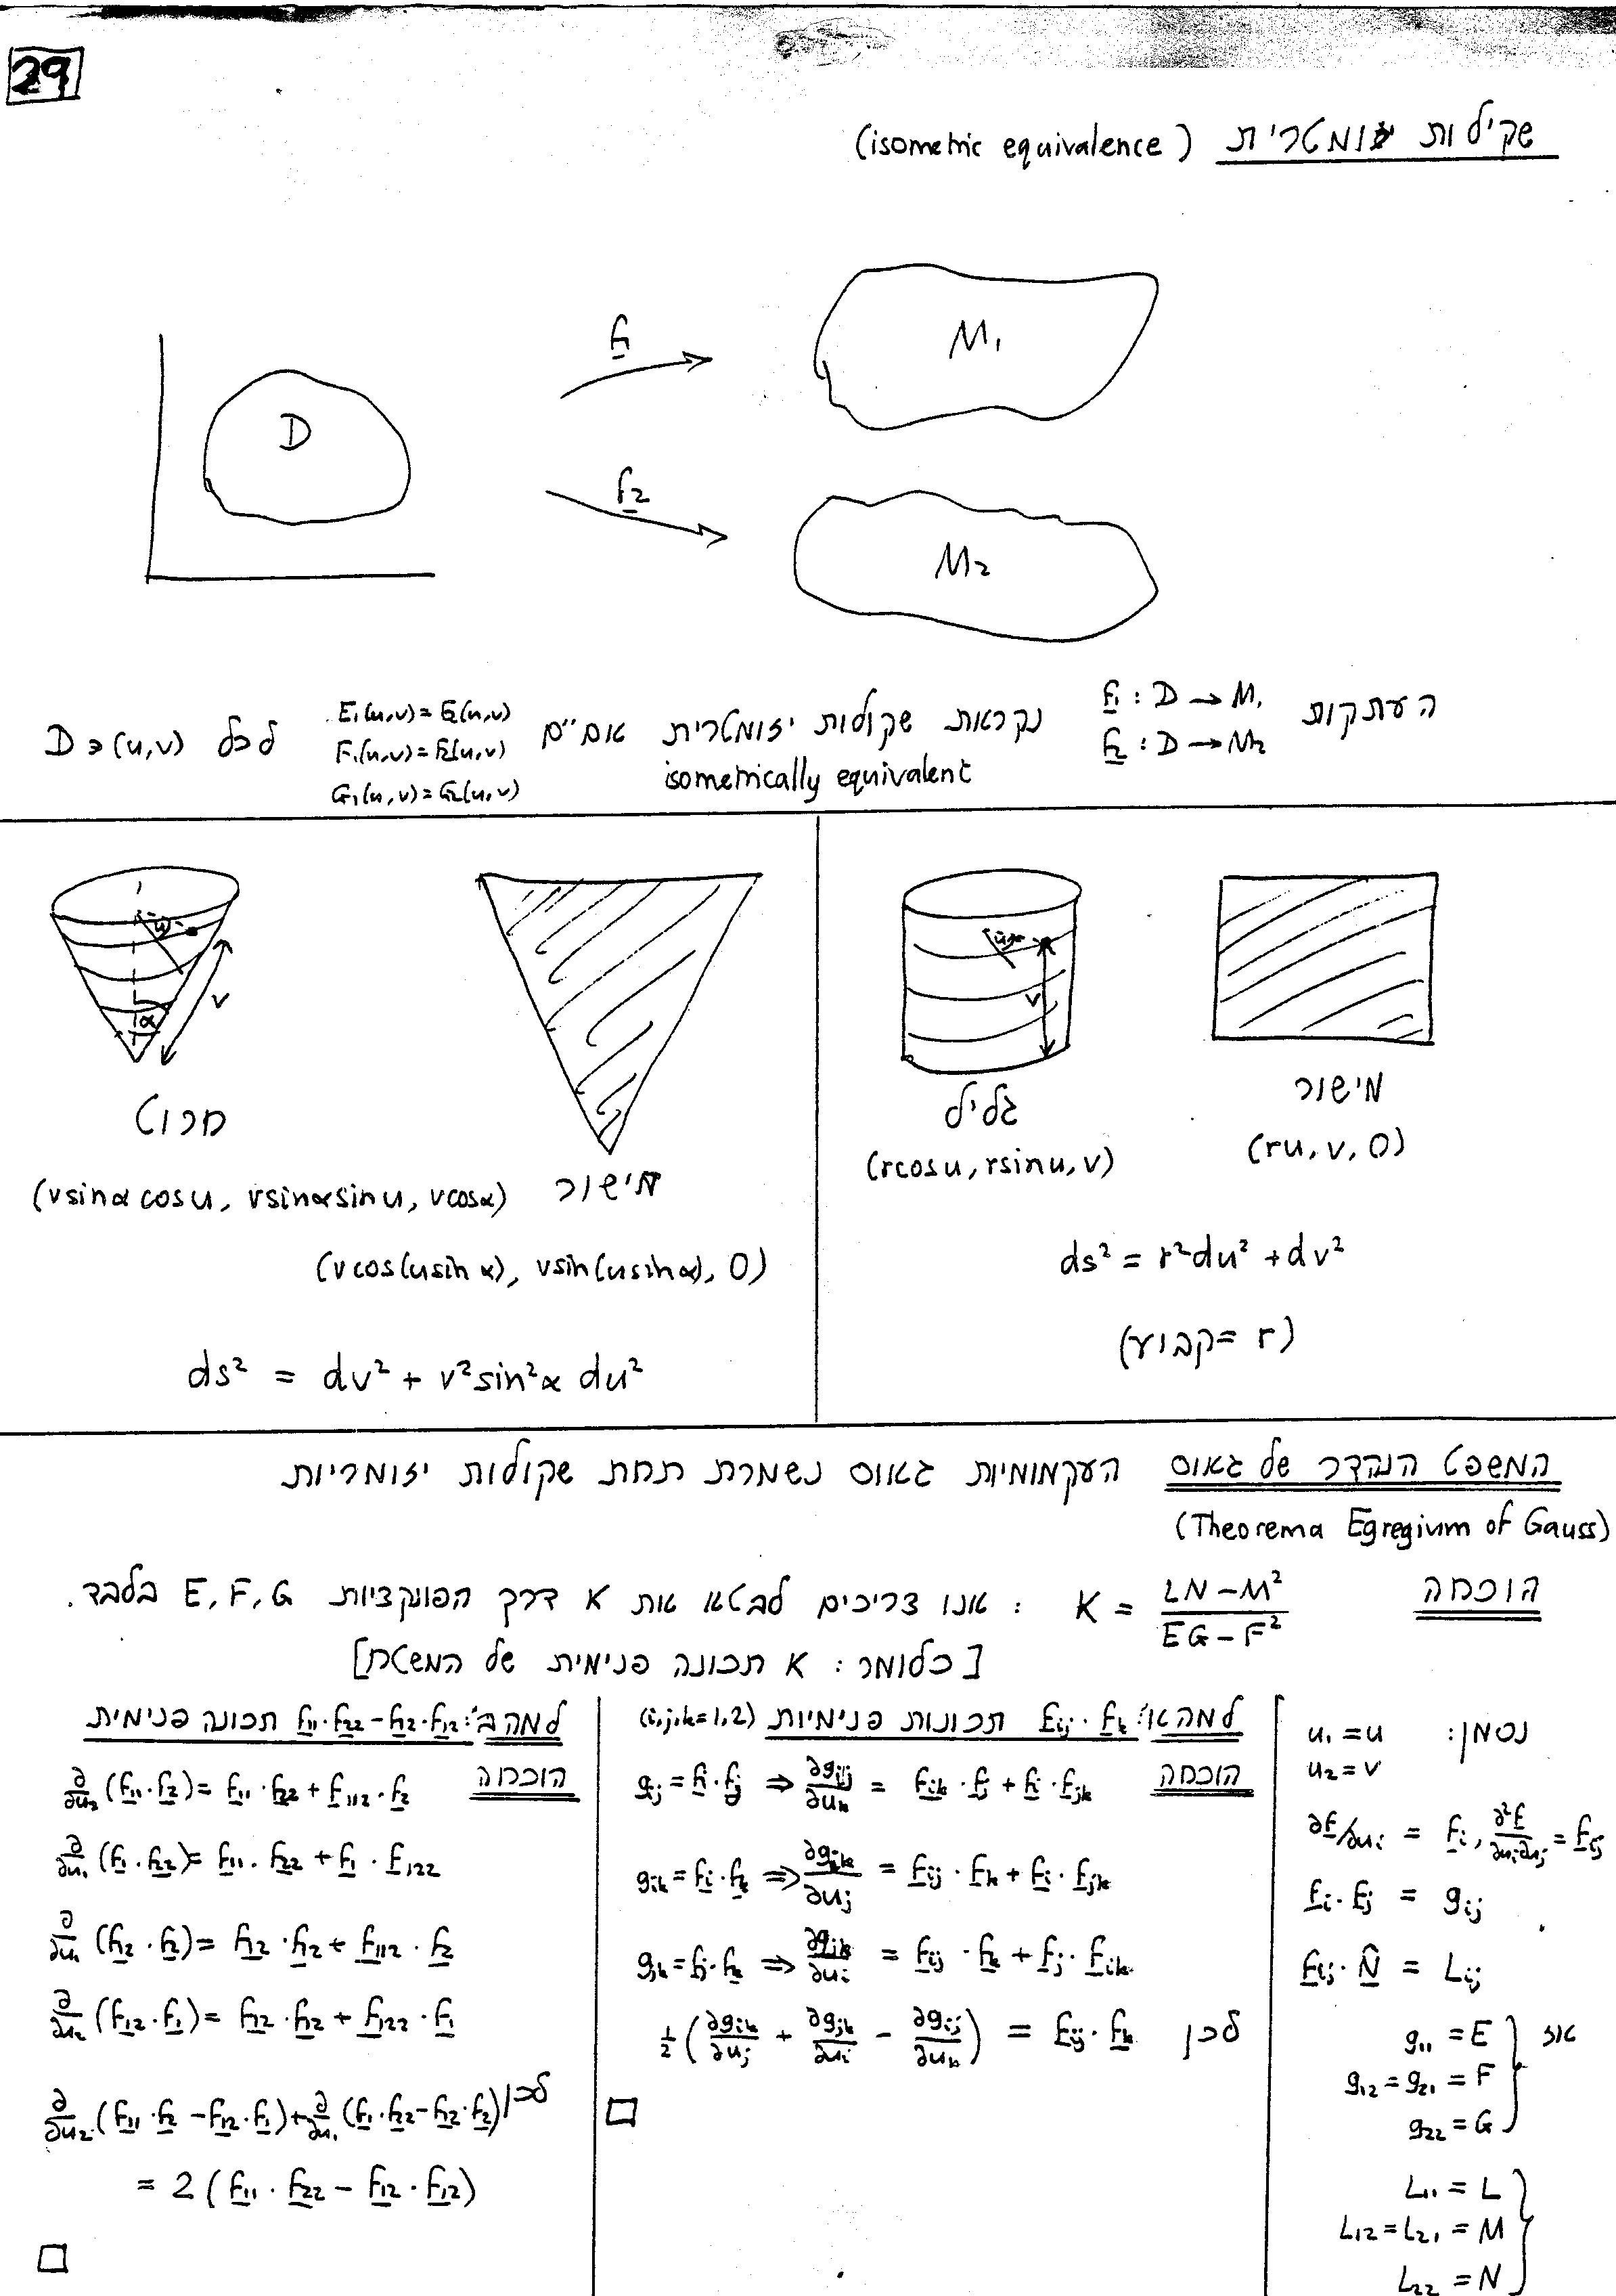 29
שקילות יזומטרית (isometric equivalence)
f₁
M₁
D
f₂
M₂
העתקות f₁ : D → M₁ נקראות שקולות יזומטרית אם"ם E₁(u,v) = E₂(u,v) לכל (u,v) ∈ D
f₂ : D → M₂ isometrically equivalent F₁(u,v) = F₂(u,v)
G₁(u,v) = G₂(u,v)
u
v
מישור
גליל
(ru, v, 0)
(rcosu, rsinu, v)
ds² = r²du² + dv²
(r = קבוע)
u
v
α
חרוט
(vsinα cosu, vsinαsinu, vcosα) מישור
(vcos(usinα), vsin(usinα), 0)
ds² = dv² + v²sin²α du²
המשפט הנהדר של גאוס העקמומיות גאוס נשמרת תחת שקולות יזומריות
(Theorema Egregium of Gauss)
הוכחה K = (LN − M²)/(EG − F²) : אנו צריכים לבטא את K דרך הפונקציות E, F, G בלבד.
[כלומר: K תכונה פנימית של המשטח]
נסמן: u₁ = u
u₂ = v
∂f/∂uᵢ = fᵢ, ∂²f/∂uᵢ∂uⱼ = fᵢⱼ
fᵢ · fⱼ = gᵢⱼ
fᵢⱼ · N̂ = Lᵢⱼ
אז g₁₁ = E
g₁₂ = g₂₁ = F
g₂₂ = G
L₁₁ = L
L₁₂ = L₂₁ = M
L₂₂ = N
למה א': fᵢⱼ · fₖ תכונות פנימיות (i,j,k=1,2)
הוכחה gᵢⱼ = fᵢ · fⱼ ⇒ ∂gᵢⱼ/∂uₖ = fᵢₖ · fⱼ + fᵢ · fⱼₖ
gᵢₖ = fᵢ · fₖ ⇒ ∂gᵢₖ/∂uⱼ = fᵢⱼ · fₖ + fᵢ · fⱼₖ
gⱼₖ = fⱼ · fₖ ⇒ ∂gⱼₖ/∂uᵢ = fᵢⱼ · fₖ + fⱼ · fᵢₖ
לכן ½(∂gᵢₖ/∂uⱼ + ∂gⱼₖ/∂uᵢ − ∂gᵢⱼ/∂uₖ) = fᵢⱼ · fₖ
□
למה ב': f₁₁ · f₂₂ − f₁₂ · f₁₂ תכונה פנימית
הוכחה ∂/∂u₂ (f₁₁ · f₂) = f₁₁ · f₂₂ + f₁₁₂ · f₂
∂/∂u₁ (f₁ · f₂₂) = f₁₁ · f₂₂ + f₁ · f₁₂₂
∂/∂u₁ (f₁₂ · f₂) = f₁₂ · f₁₂ + f₁₁₂ · f₂
∂/∂u₂ (f₁₂ · f₁) = f₁₂ · f₁₂ + f₁₂₂ · f₁
לכן ∂/∂u₂ (f₁₁ · f₂ − f₁₂ · f₁) + ∂/∂u₁ (f₁ · f₂₂ − f₁₂ · f₂)
= 2 (f₁₁ · f₂₂ − f₁₂ · f₁₂)
□